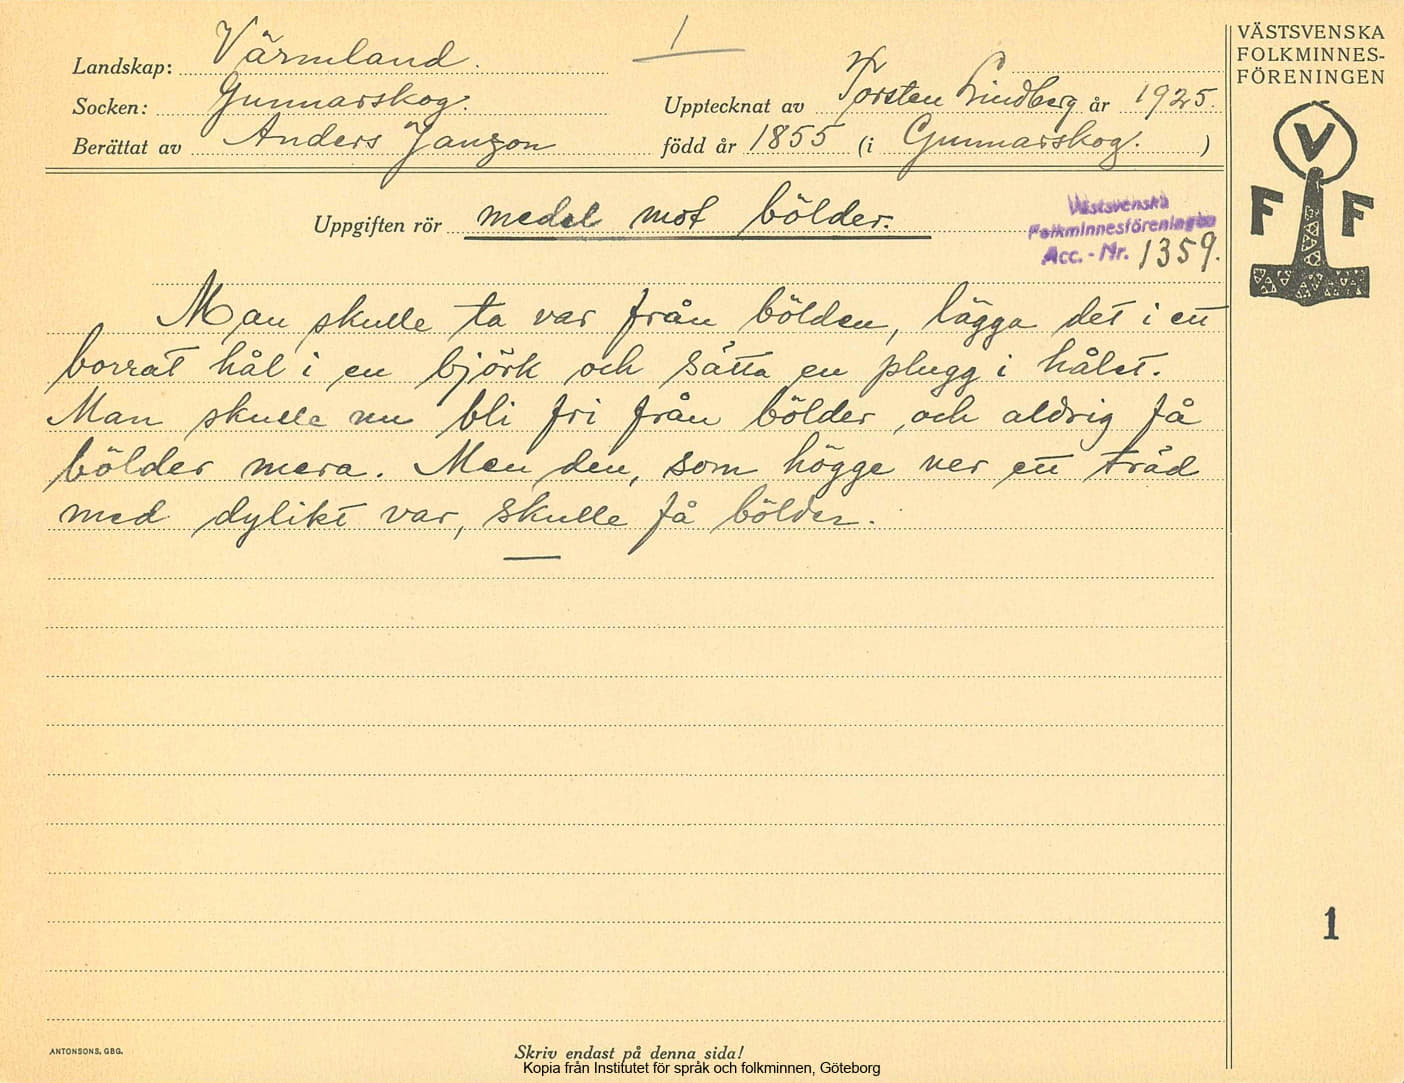 1
Landskap: Värmland.
Socken: Gunnarskog.
Upptecknat av Torsten Lindberg år 1925.
Berättat av Anders Janzon
född år 1855 (i Gunnarskog. )
VÄSTSVENSKA
FOLKMINNES-
FÖRENINGEN
V
F F
Uppgiften rör medel mot bölder.
Västsvenska
Folkminnesföreningen
Acc. - Nr. 1359.
Man skulle ta var från bölden, lägga det i ett
borrat hål i en björk och sätta en plugg i hålet.
Man skulle nu bli fri från bölder och aldrig få
bölder mera. Men den, som högge ner ett träd
med dylikt var, skulle få bölder.
1
ANTONSONS, GBG.
Skriv endast på denna sida!
Kopia från Institutet för språk och folkminnen, Göteborg